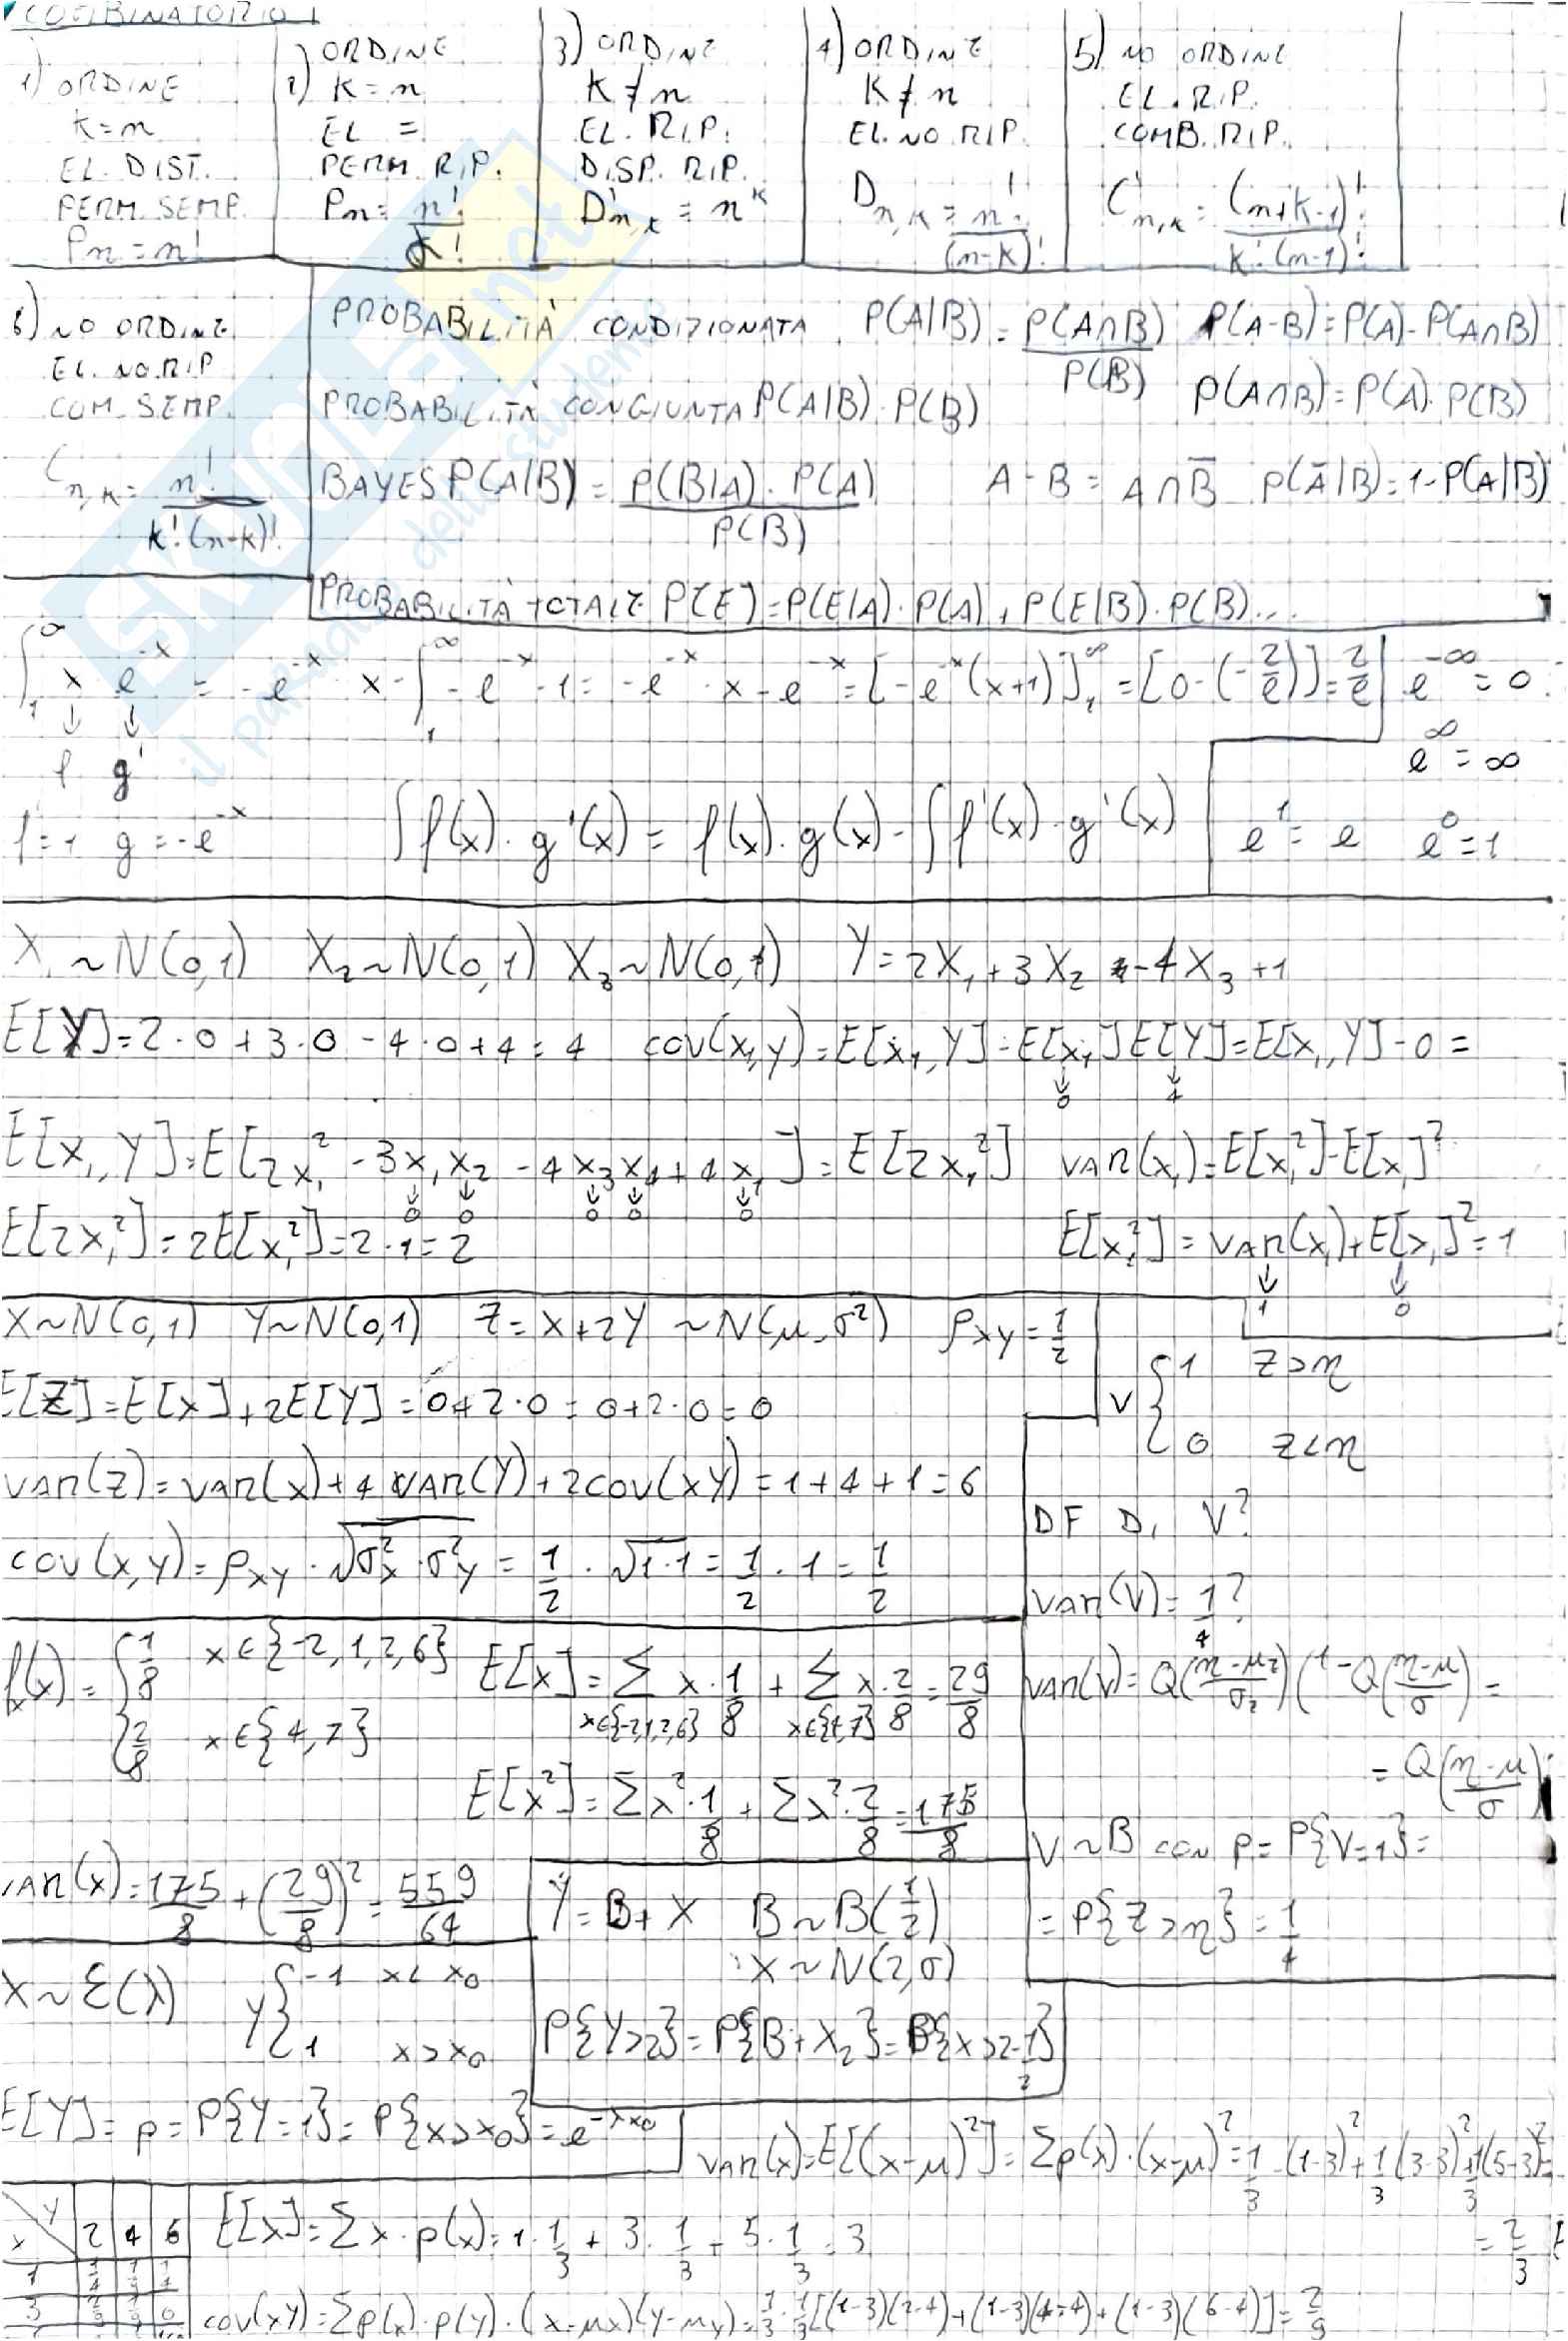 COMBINATORIO
1) ORDINE
K=n
EL. DIST.
PERM. SEMP.
Pn = n!
2) ORDINE
K = n
EL =
PERM. RIP.
Pn = n!/K!
3) ORDINE
K ≠ n
EL. RIP.
DISP. RIP.
D'n,k = n^k
4) ORDINE
K ≠ n
EL. NO RIP.
Dn,k = n!/(n-k)!
5) NO ORDINE
EL. RIP.
COMB. RIP.
C'n,k = (n+k-1)!/k!·(n-1)!
6) NO ORDINE
EL. NO RIP
COM. SEMP.
Cn,k = n!/k!·(n-k)!
PROBABILITÀ CONDIZIONATA P(A|B) = P(A∩B)/P(B) P(A-B)=P(A)-P(A∩B)
PROBABILITÀ CONGIUNTA P(A|B)·P(B) P(A∩B)=P(A)·P(B)
BAYES P(A|B) = P(B|A)·P(A)/P(B) A-B = A∩B̄ P(Ā|B)=1-P(A|B)
PROBABILITÀ TOTALE P(E)=P(E|A)·P(A)+P(E|B)·P(B)...
∫₁^∞ x e^-x = -e^-x · x - ∫₁^∞ -e^-x · 1 = -e^-x · x - e^-x = [-e^-x (x+1)]₁^∞ = [0-(-2/e)] = 2/e
e^-∞ = 0
e^∞ = ∞
f g'
f=1 g=-e^-x
∫f(x)·g'(x) = f(x)·g(x) - ∫f'(x)·g'(x)
e^1 = e e^0 = 1
X₁~N(0,1) X₂~N(0,1) X₃~N(0,1) Y=2X₁+3X₂-4X₃+1
E[Y]=2·0+3·0-4·0+4=4 cov(x,y)=E[x₁,Y]-E[x₁]E[Y]=E[x₁,Y]-0=
0 4
E[x₁,Y]=E[2x₁²-3x₁x₂-4x₃x₁+4x₁]=E[2x₁²] VAR(x₁)=E[x₁²]-E[x₁]²
0 0 0 0 0
E[2x₁²]=2E[x₁²]=2·1=2 E[x₁²]=VAR(x₁)+E[x₁]²=1
1 0
X~N(0,1) Y~N(0,1) Z=X+2Y ~N(μ,σ²) ρxy=1/2
E[Z]=E[X]+2E[Y]=0+2·0=0+2·0=0
VAR(Z)=VAR(X)+4VAR(Y)+2COV(XY)=1+4+1=6
COV(X,Y)=ρxy·√σx²·σy² = 1/2·√1·1 = 1/2·1 = 1/2
V { 1 Z>η
0 Z<η
DF DI V?
VAR(V)=1/4?
VAR(V)=Q(η-μz/σz)(1-Q(η-μ/σ)=
= Q(η-μ/σ)
V~B CON P=P{V=1}=
=P{Z>η}=1/4
fx(x) = { 1/8 x∈{-2,1,2,6}
2/8 x∈{4,7}
E[X]=Σ x·1/8 + Σ x·2/8 = 29/8
x∈{-2,1,2,6} x∈{4,7}
E[X²]=Σx²·1/8 + Σx²·2/8 = 175/8
VAR(X)=175/8+(29/8)²=559/64
Y=B+X B~B(1/2)
X~N(2,σ)
P{Y>2}=P{B+X₂}=P{X>2-1/2}
X~Ɛ(λ) Y { -1 x<x₀
1 x>x₀
E[Y]=p=P{Y=1}=P{X>x₀}=e^-λx₀
VAR(x)=E[(x-μ)²]=Σp(x)·(x-μ)²=1/3·(1-3)²+1/3(3-3)²+1/3(5-3)²=
= 2/3
x Y 2 4 6
1
3
E[X]=Σx·p(x)=1·1/3+3·1/3+5·1/3=3
COV(XY)=Σp(x)·p(y)·(x-μx)(y-μy)=1/3·1/3[(1-3)(2-4)+(1-3)(4-4)+(1-3)(6-4)]=2/9
SKUOLA.net
il paradiso dello studente